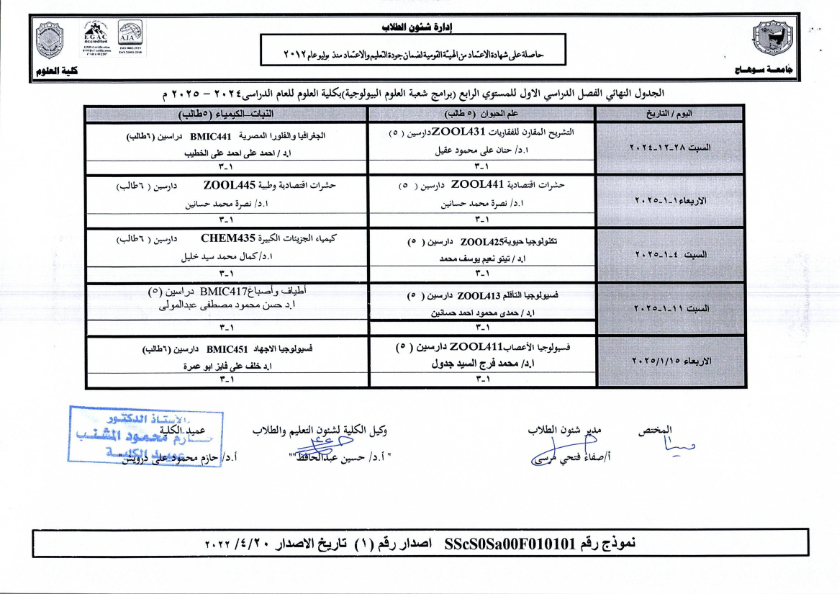 إدارة شئون الطلاب
حاصلة على شهادة الاعتماد من الهيئة القومية لضمان جودة التعليم والاعتماد منذ يوليو عام ٢٠١٢
جامعة سوهاج
كلية العلوم
EGAC
AJA
الجدول النهائي الفصل الدراسي الاول للمستوي الرابع (برامج شعبة العلوم البيولوجية)بكلية العلوم للعام الدراسى٢٠٢٤ – ٢٠٢٥ م
اليوم / التاريخ
علم الحيوان (٥ طالب)
النبات–الكيمياء (٥طالب)
السبت ٢٨-١٢-٢٠٢٤
التشريح المقارن للفقاريات ZOOL431دارسين (٥)
ا.د/ حنان على محمود عقيل
٣-١
الجغرافيا والفلورا المصرية BMIC441 دراسين (٦طالب)
ا.د / احمد على احمد على الخطيب
٣-١
الاربعاء١-١-٢٠٢٥
حشرات اقتصادية ZOOL441 دارسين (٥)
ا.د/ نصرة محمد حسانين
٣-١
حشرات اقتصادية وطبية ZOOL445 دارسين (٦طالب)
ا.د/ نصرة محمد حسانين
٣-١
السبت ٤-١-٢٠٢٥
تكنولوجيا حيويةZOOL425 دارسين (٥)
ا.د / تيتو نعيم يوسف محمد
٣-١
كيمياء الجزيئات الكبيرة CHEM435 دارسين (٦طالب)
ا.د/كمال محمد سيد خليل
٣-١
السبت ١١-١-٢٠٢٥
فسيولوجيا التأقلم ZOOL413 دارسين (٥)
ا.د / حمدى محمود احمد حسانين
٣-١
أطياف وأصباغBMIC417 دراسين (٥)
ا.د حسن محمود مصطفى عبدالمولى
الاربعاء ٢٠٢٥/١/١٥
فسيولوجيا الأعصابZOOL411 دارسين (٥)
ا.د/ محمد فرج السيد جدول
٣-١
فسيولوجيا الاجهاد BMIC451 دارسين (٦طالب)
ا.د خلف على فايز ابو عمرة
٣-١
المختص
مدير شئون الطلاب
أ/صفاء فتحي مرسى
وكيل الكلية لشئون التعليم والطلاب
" أ.د/ حسين عبدالحافظ"
عميد الكلية
أ.د/ حازم محمود على درويش
الأستاذ الدكتور
عميد الكلية
نموذج رقم SScS0Sa00F010101 اصدار رقم (١) تاريخ الاصدار ٢٠٢٢/٤/٢٠